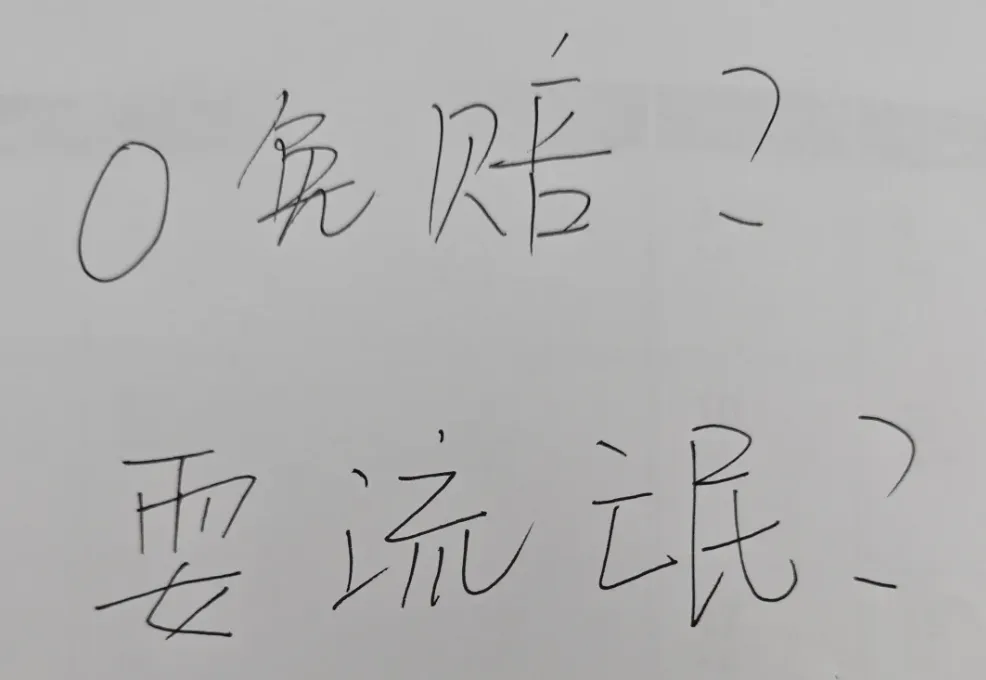 0免赔?
耍流氓?